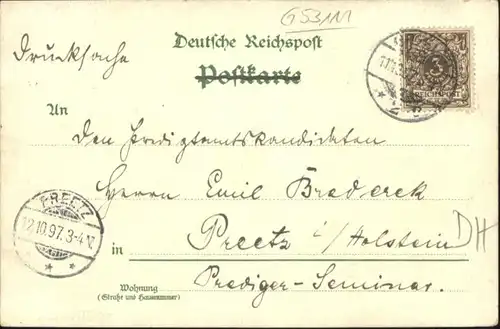 G5311
Deutsche Reichspost
Drucksache
Postkarte
An
den Predigtamtskandidaten
Herrn Emil Brederek
in Preetz i/Holstein
DH
Prediger-Seminar.
Wohnung
(Straße und Hausnummer)
PREETZ
12.10.97.3-4N.
3
REICHSPOST